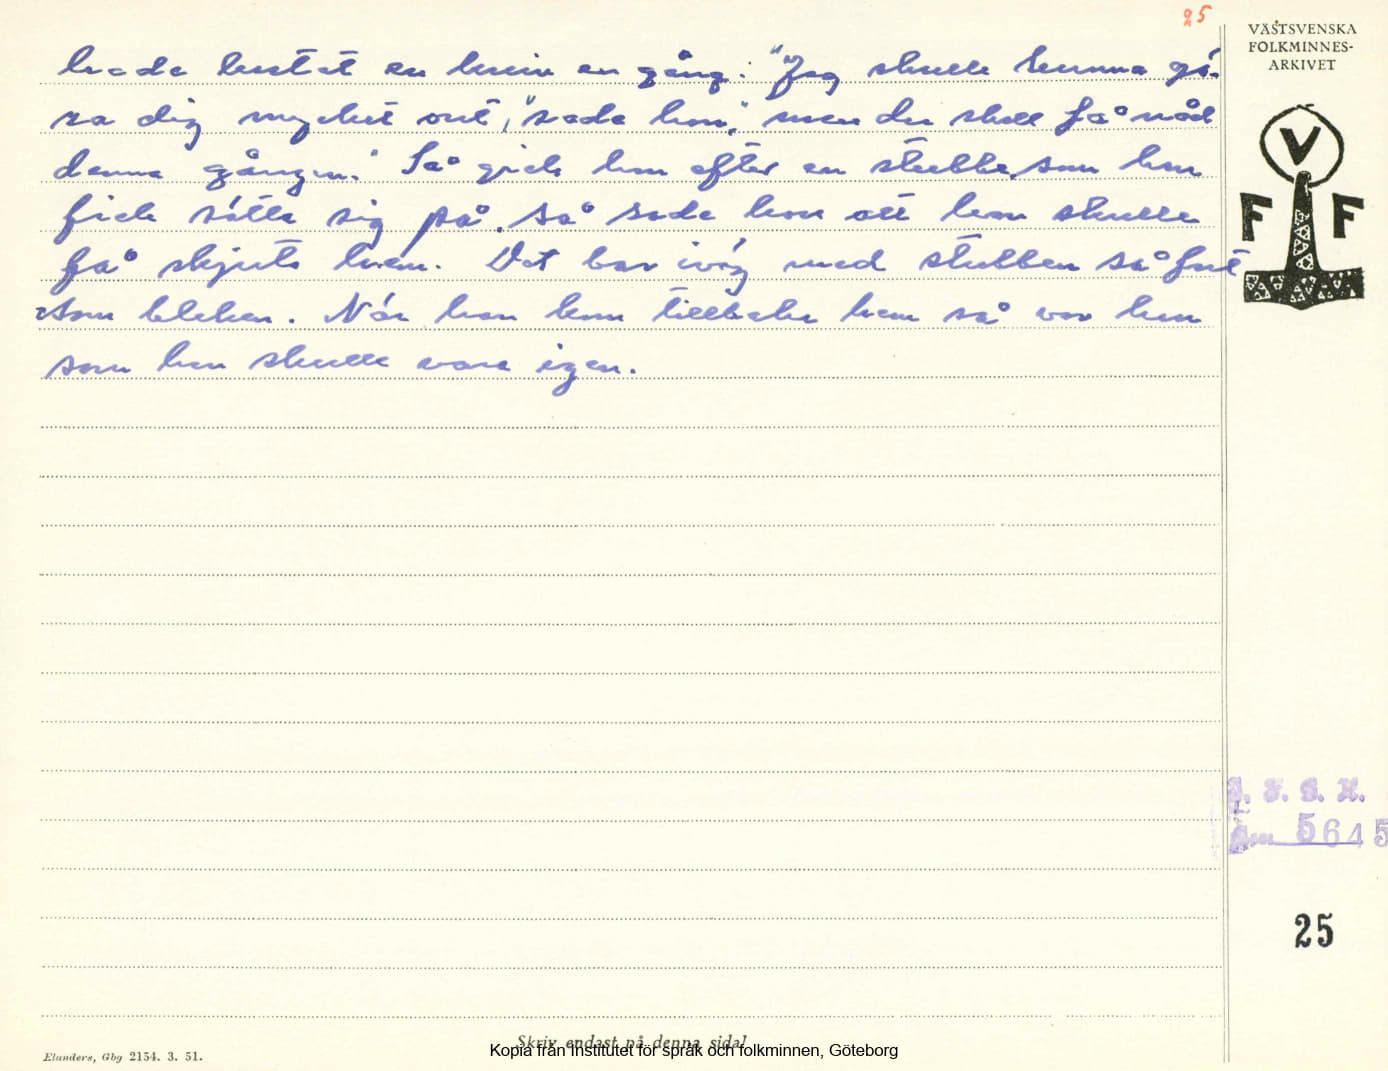 25
VÄSTSVENSKA
FOLKMINNES-
ARKIVET
V
F F
hade kastat en kniv en gång: "Jag skulle kunna gö-
ra dig mycket ont," sade hon, "men du skall få nåd
denna gången." Så gick hon efter en stubbe, som han
fick sätta sig på. Så sade hon att han skulle
få skjuts hem. Det bar iväg med stubben så fort
som blixten. När han kom tillbaka hem så var han
som han skulle vara igen.
5645
25
Skriv endast på denna sida!
Elanders, Gbg 2154. 3. 51.
Kopia från Institutet för språk och folkminnen, Göteborg